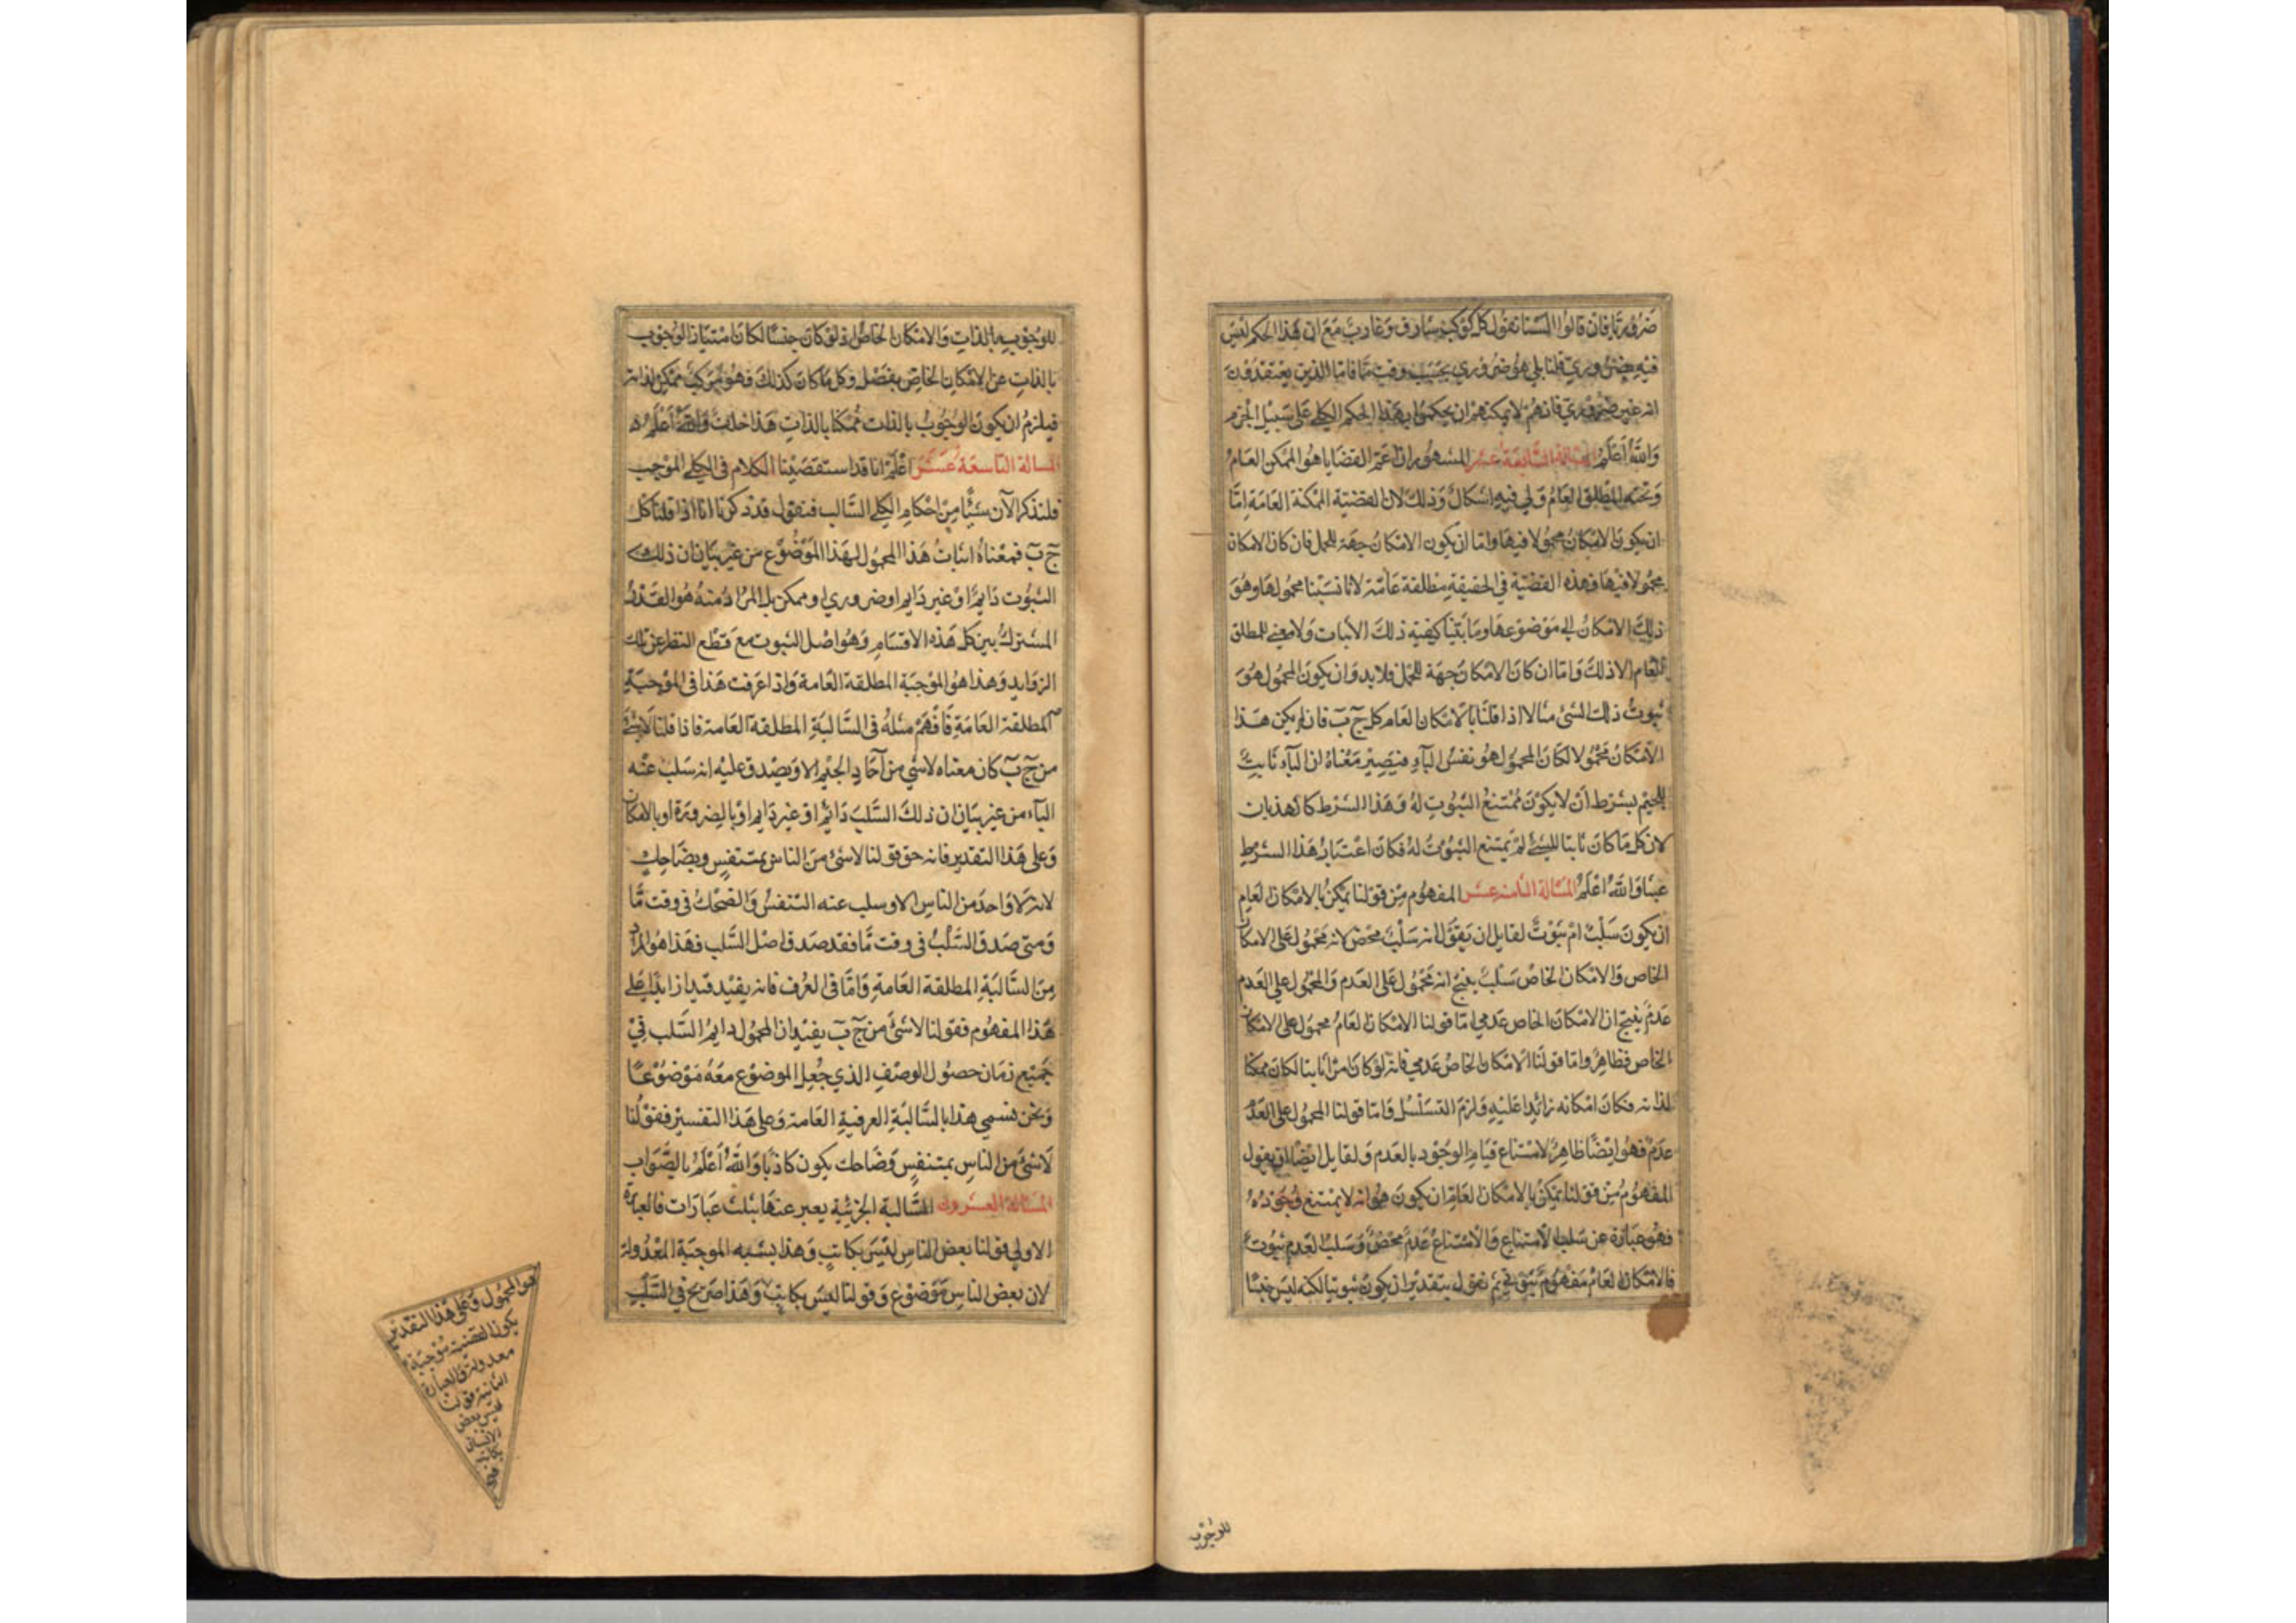 ضروريا فان قالوا السنا نقول كل كوكب شارق وغارب مع ان هذا الحكم ليس
فيه بضروري قلنا بلى هو ضروري بحسب وقت ما فاما الذين يعتقدون
انه غير ضروري فانهم لا يمكنهم ان يحكموا بهذا الحكم الكلي على سبيل الجزم
والله أعلم المسالة السابعة عشر المشهور ان اعم القضايا هو الممكن العام
وتحته المطلق العام ولي فيه اشكال وذلك لان القضية الممكنة العامة اما
ان يكون الامكان محمولا فيها واما ان يكون الامكان جهة للحمل فان كان الامكان
محمولا فيها فهذه القضية في الحقيقة مطلقة عامة لانا نسبنا محمولها وهو
ذلك الامكان الى موضوعها وما بينا كيفية ذلك الاثبات ولا معنى للمطلق
العام الا ذلك واما ان كان الامكان جهة للحمل فلا بد وان يكون المحمول هو
ثبوت ذلك الشئ مثلا اذا قلنا بالامكان العام كل ج ب فان لم يكن هذا
الامكان محمولا لكان المحمول هو نفس الباء فيصير معناه ان الباء ثابت
للجيم بشرط ان لا يكون ممتنع الثبوت له وهذا الشرط كالهذيان
لان كل ما كان ثابتا للشئ لم يمتنع الثبوت له فكان اعتبار هذا الشرط
عبثا والله اعلم المسالة الثامنة عشر المفهوم من قولنا يمكن بالامكان العام
ان يكون سلب ام ثبوت لقايل ان يقول انه سلب محض لانه محمول على الامكان
الخاص والامكان الخاص سلب ينتج انه محمول على العدم والمحمول على العدم
عدم ينتج ان الامكان الخاص عدمي اما قولنا الامكان العام محمول على الامكان
الخاص فظاهر واما قولنا الامكان الخاص عدمي فانه لو كان امرا ثابتا لكان ممكنا
لذاته فكان امكانه زائدا عليه ولزم التسلسل واما قولنا المحمول على العدم
عدم فهو ايضا ظاهر لامتناع قيام الوجود بالعدم ولقايل ايضا ان يقول
المفهوم من قولنا يمكن بالامكان العام ان يكون هو انه لا يمتنع وجوده
فهو عبارة عن سلب الامتناع والامتناع عدم محض وسلب العدم ثبوت
فالامكان العام مفهوم ثبوتي ثم نقول بتقدير ان يكون ثبوتيا لكنه ليس جنسا
للوجوب
للوجوب بالذات والامكان الخاص اذ لو كان جنسا لكان امتياز الوجوب
بالذات عن الامكان الخاص بفصل وكل ما كان كذلك فهو مركب ممكن لذاته
فيلزم ان يكون الوجوب بالذات ممكنا بالذات هذا خلف والله أعلم
المسالة التاسعة عشر اعلم انا قد استقصينا الكلام في الكلي الموجب
فلنذكر الآن شيئا من احكام الكلي السالب فنقول قد ذكرنا انا اذا قلنا كل
ج ب فمعناه اثبات هذا المحمول لهذا الموضوع من غير بيان ان ذلك
الثبوت دايم او غير دايم او ضروري او ممكن بل المراد منه هو القدر
المشترك بين كل هذه الاقسام وهو اصل الثبوت مع قطع النظر عن تلك
الزوايد وهذا هو الموجبة المطلقة العامة واذا عرفت هذا في الموجبة
المطلقة العامة فافهم مثله في السالبة المطلقة العامة فاذا قلنا لا شئ
من ج ب كان معناه لا شئ من آحاد الجيم الا ويصدق عليه انه سلب عنه
الباء من غير بيان ان ذلك السلب دائم او غير دايم او بالضرورة او بالامكان
وعلى هذا التقدير فانه حق قولنا لا شئ من الناس بمتنفس وبضاحك
لانه لا واحد من الناس الا وسلب عنه التنفس والضحك في وقت ما
ومتى صدق السلب في وقت ما فقد صدق اصل السلب فهذا هو المراد
من السالبة المطلقة العامة واما في العرف فانه يفيد قيدا زايدا على
هذا المفهوم فقولنا لا شئ من ج ب يفيد ان المحمول دايم السلب في
جميع زمان حصول الوصف الذي جعل الموضوع معه موضوعا
ونحن نسمي هذا بالسالبة العرفية العامة وعلى هذا التفسير فقولنا
لا شئ من الناس بمتنفس وضاحك يكون كاذبا والله أعلم بالصواب
المسالة العشرون السالبة الجزئية يعبر عنها بثلث عبارات فالعبارة
الاولى قولنا بعض الناس ليس بكاتب وهذا يشبه الموجبة المعدولة
لان بعض الناس موضوع وقولنا ليس بكاتب وهذا صريح في السلب
هو المحمول وعلى هذا التقدير
يكون القضية موجبة
معدولة والعبارة
الثانية قولنا
ليس بعض
الانسان
بكاتب